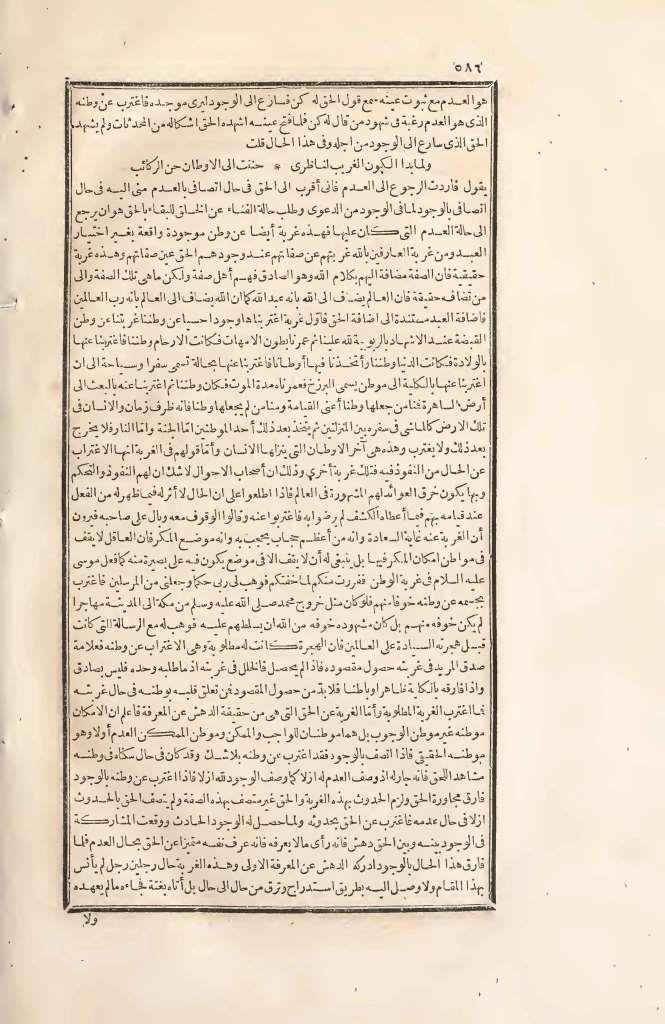 ٥٨٦
هو العدم مع ثبوت عينه سمع قول الحق له كن فسارع الى الوجود ليرى موجده فاغترب عن وطنه
الذى هو العدم رغبة فى شهود من قال له كن فلما فتح عينه اشهده الحق اشكاله من المحدثات ولم يشهد
الحق الذى سارع الى الوجود من أجله وفى هذا الحال قلت
ولما بدا الكون الغريب لناظرى * حننت الى الاوطان حن الركائب
يقول فاردت الرجوع الى العدم فانى أقرب الى الحق فى حال اتصافى بالعدم منى اليه فى حال
اتصافى بالوجود لما فى الوجود من الدعوى وطلب حالة الفناء عن الخلق للبقاء بالحق هو ان يرجع
الى حالة العدم التى كان عليها فهذه غربة أيضا عن وطن موجودة واقعة بغير اختيار
العبد ومن غربة العارفين بالله غربتهم عن صفاتهم عند وجودهم الحق عين صفاتهم وهذه غربة
حقيقية فان الصفة مضافة اليهم بكلام الله وهو الصادق فهم أهل صفة ولكن ما هى تلك الصفة والى
من تضاف حقيقة فان العالم يضاف الى الله بانه عبد الله كما ان الله يضاف الى العالم بانه رب العالمين
فاضافة العبد مستندة الى اضافة الحق فاوّل غربة اغتربناها وجودا حسيا عن وطننا غربتنا عن وطن
القبضة عند الاشهاد بالربوبية لله علينا ثم عمرنا بطون الامهات فكانت الارحام وطننا فاغتربنا عنها
بالولادة فكانت الدنيا وطننا واتخذنا فيها أوطانا فاغتربنا عنها بحالة تسمى سفرا وسياحة الى ان
اغتربنا عنها بالكلية الى موطن يسمى البرزخ فعمرناه مدة الموت فكان وطننا ثم اغتربنا عنه بالبعث الى
أرض الساهرة فمنا من جعلها وطنا أعنى القيامة ومنا من لم يجعلها وطنا فانه ظرف زمان والانسان فى
تلك الارض كالماشى فى سفره بين المنزلتين ثم يتخذ بعد ذلك أحد الموطنين امّا الجنة وامّا النار فلا يخرج
بعد ذلك ولا يغترب وهذه هى آخر الاوطان التى ينزلها الانسان وأمّا قولهم فى الغربة انها الاغتراب
عن الحال من النفوذ فيه فتلك غربة أخرى وذلك ان أصحاب الاحوال لاشك ان لهم النفوذ والتحكم
وبها يكون خرق العوائد لهم المشهورة فى العالم فاذا اطلعوا على ان الحال لا أثر له فيما ظهر له من الفعل
عند قيامه بهم فيما أعطاه الكشف لم يرضوا به فاغتربوا عنه وقالوا الوقوف معه وبال على صاحبه فيرون
أن الغربة عنه غاية السعادة وانه من أعظم حجاب يحجب به وانه موضع المكر فان العاقل لا يقف
فى مواطن امكان المكر فيها بل ينبغى له أن لا يقف الا فى موضع يكون فيه على بصيرة منه كما فعل موسى
عليه السلام فى غربة الوطن ففررت منكم لما خفتكم فوهب لى ربى حكما وجعلنى من المرسلين فاغترب
بجسمه عن وطنه خوفا منهم فلو كان مثل خروج محمد صلى الله عليه وسلم من مكة الى المدينة مهاجرا
لم يكن خوفه منهم بل كان مشهوده خوفه من الله ان يسلطهم عليه فوهب له مع الرسالة التى كانت
قبل هجرته السيادة على العالمين فان الهجرة كانت له مطلوبة وهى الاغتراب عن وطنه فعلامة
صدق المريد فى غربته حصول مقصوده فاذا لم يحصل فالخلل فى غربته اذ ما طلبه وحده فليس بصادق
واذا فارقه بالكلية ظاهرا وباطنا فلابدّ من حصول المقصود فمن تعلق قلبه بوطنه فى حال غربته
فما اغترب الغربة المطلوبة وأمّا الغربة عن الحق التى هى من حقيقة الدهش عن المعرفة فاعلم ان الامكان
موطنه غير موطن الوجوب بل هما موطنان للواجب والممكن وموطن الممكن العدم أولا وهو
موطنه الحقيقى فاذا اتصف بالوجود فقد اغترب عن وطنه بلاشك وقد كان فى حال سكناه فى وطنه
مشاهدا للحق فانه جار له اذ وصف العدم له أزلا كما وصف الوجود لله أزلا فاذا اغترب عن وطنه بالوجود
فارق مجاورة الحق ولزم الحدوث بهذه الغربة والحق غير متصف بهذه الصفة ولم يتصف الحق بالحدوث
أزلا فى حال عدمه فاغترب عن الحق بحدوثه ولما حصل له الوجود الحادث ووقعت المشاركة
فى الوجود بينه وبين الحق دهش فانه رأى ما لا يعرفه فانه عرف نفسه متميزا عن الحق بحال العدم فلما
فارق هذا الحال بالوجود ادركه الدهش عن المعرفة الاولى وهذه الغربة حال رجلين رجل لم يأنس
بهذا المقام ولا وصل اليه بطريق استدراج وترق من حال الى حال بل أتاه بغتة فجاءه ما لم يعهده
ولا